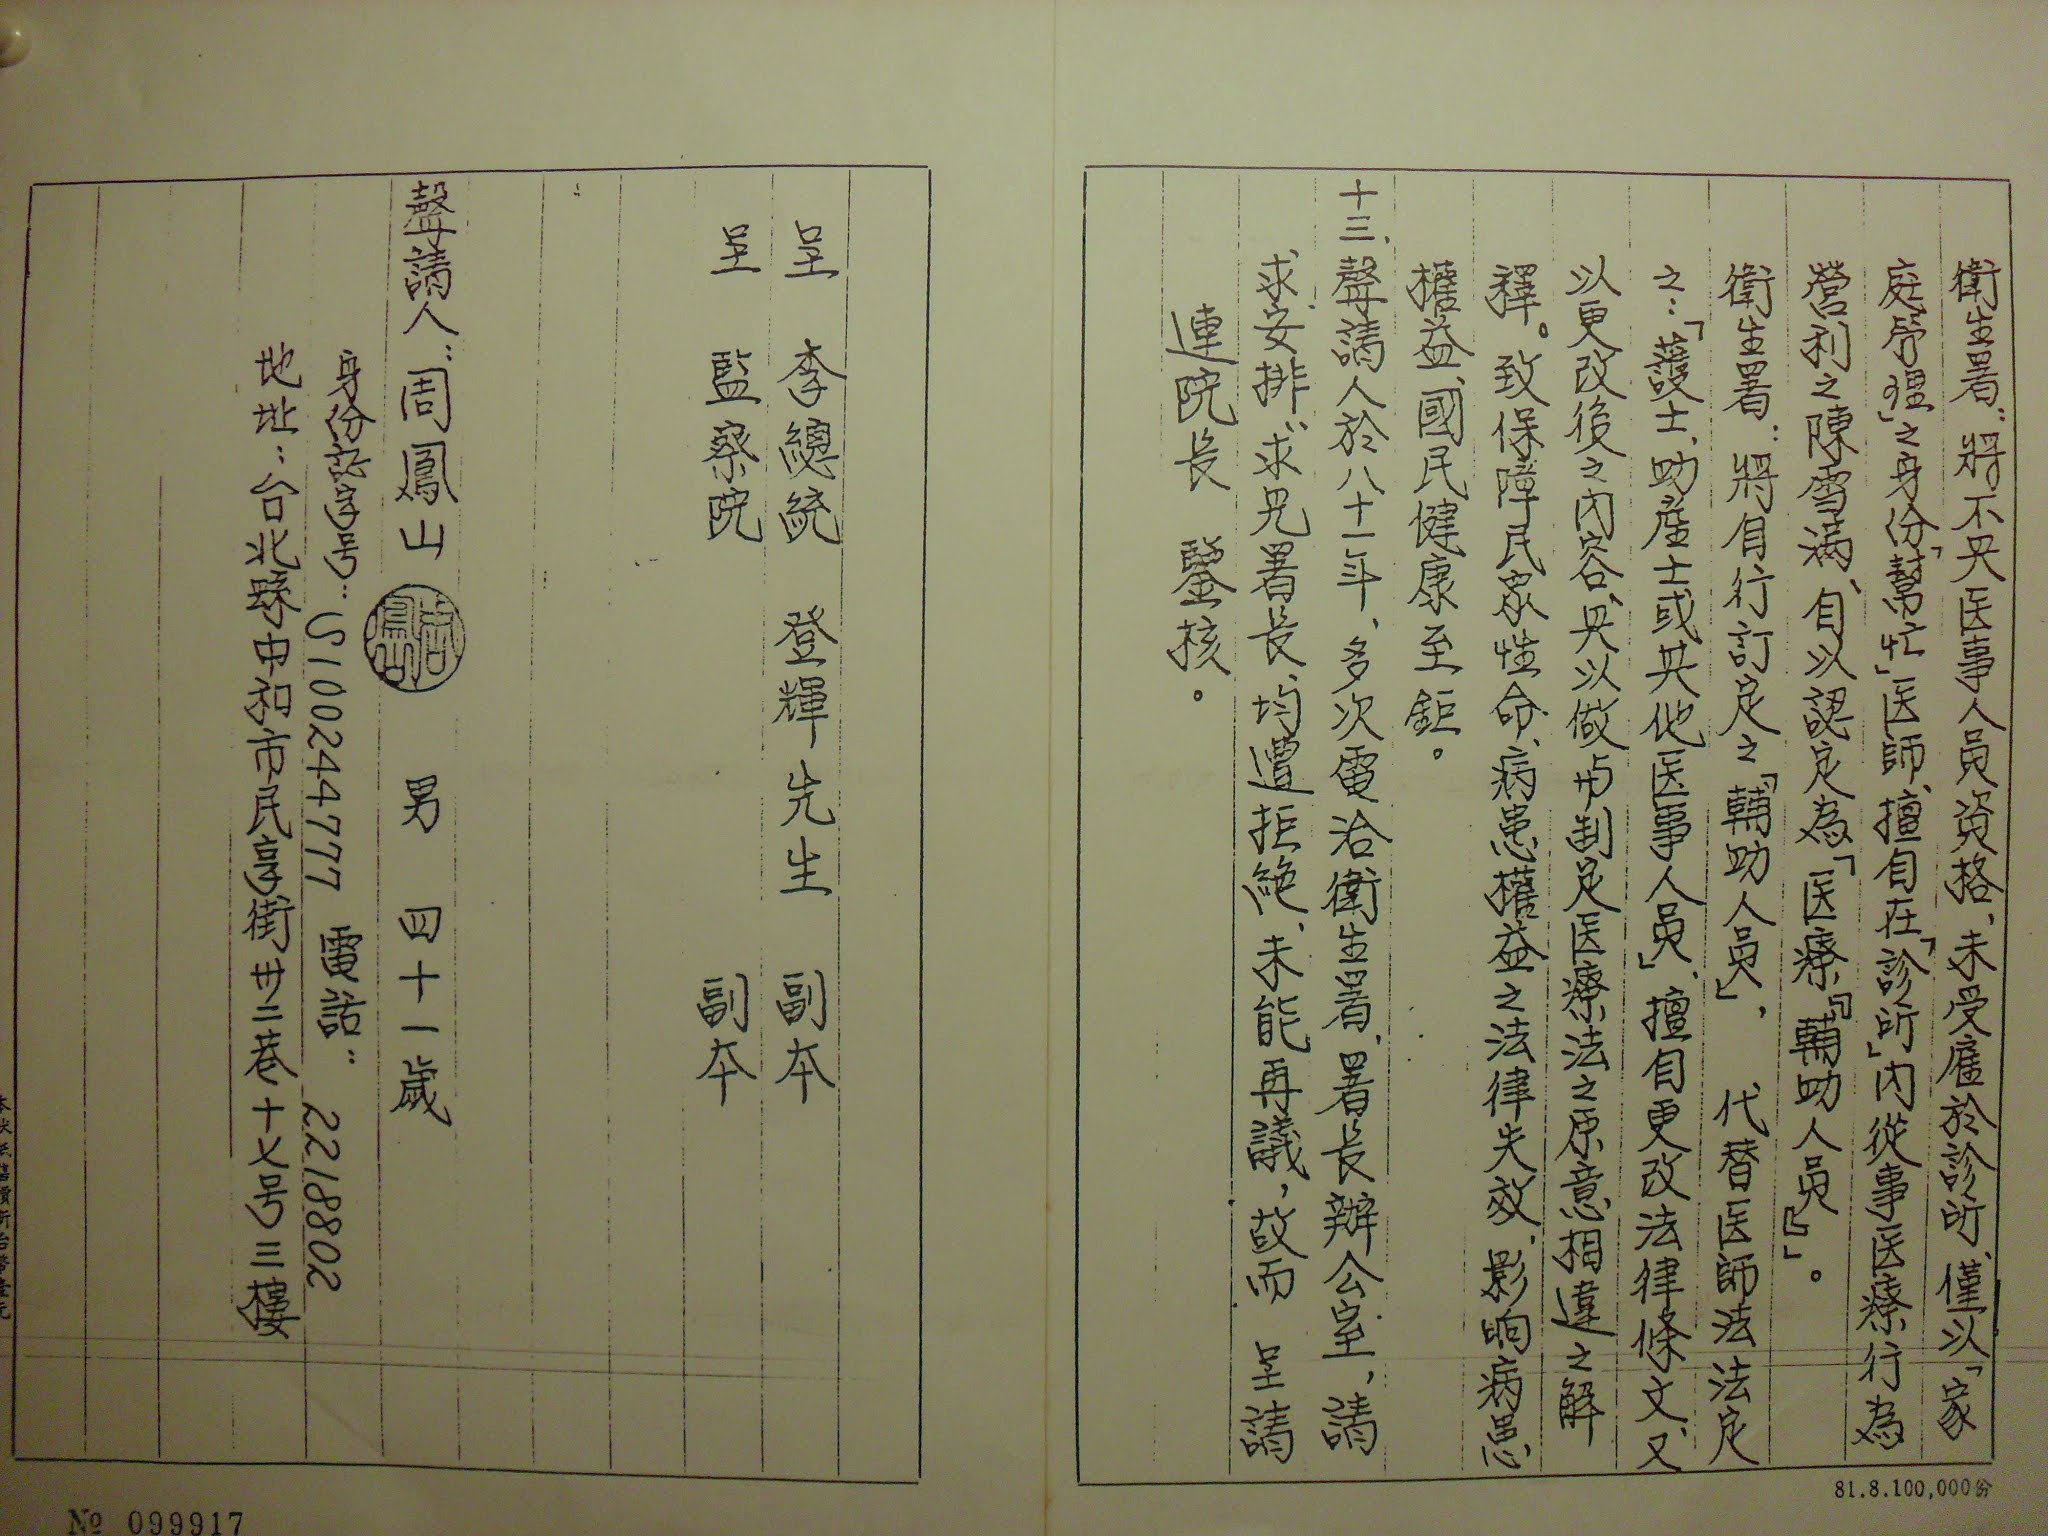 衛生署：將不具医事人員資格、未受雇於診所、僅以「家
庭旁理」之身份「幫忙」医師、擅自在「診所」内從事医療行為
營利之陳雪満、自以認定為「医療『輔助人員』」。
衛生署：將自行訂定之「輔助人員」，代替医師法法定
之：「護士、助產士或其他医事人員」、擅自更改法律條文、又
以更改後之内容、具以做与制定医療法之原意相違之解
釋。致保障民眾性命、病患權益之法律失效、影响病患
權益、國民健康至鉅。
十三、聲請人於八十一年、多次電洽衛生署、署長辦公室、請
求安排、求見署長、均遭拒絶、未能再議，故而 呈請
連院長 鑒核。
呈 李總統 登輝先生 副本
呈 監察院 副本
聲請人：周鳳山 男 四十一歲
身份証字号：S100244777 電話：2218802
地址：台北縣中和市民享街卅二巷十七号三樓
81.8.100,000份
№ 099917